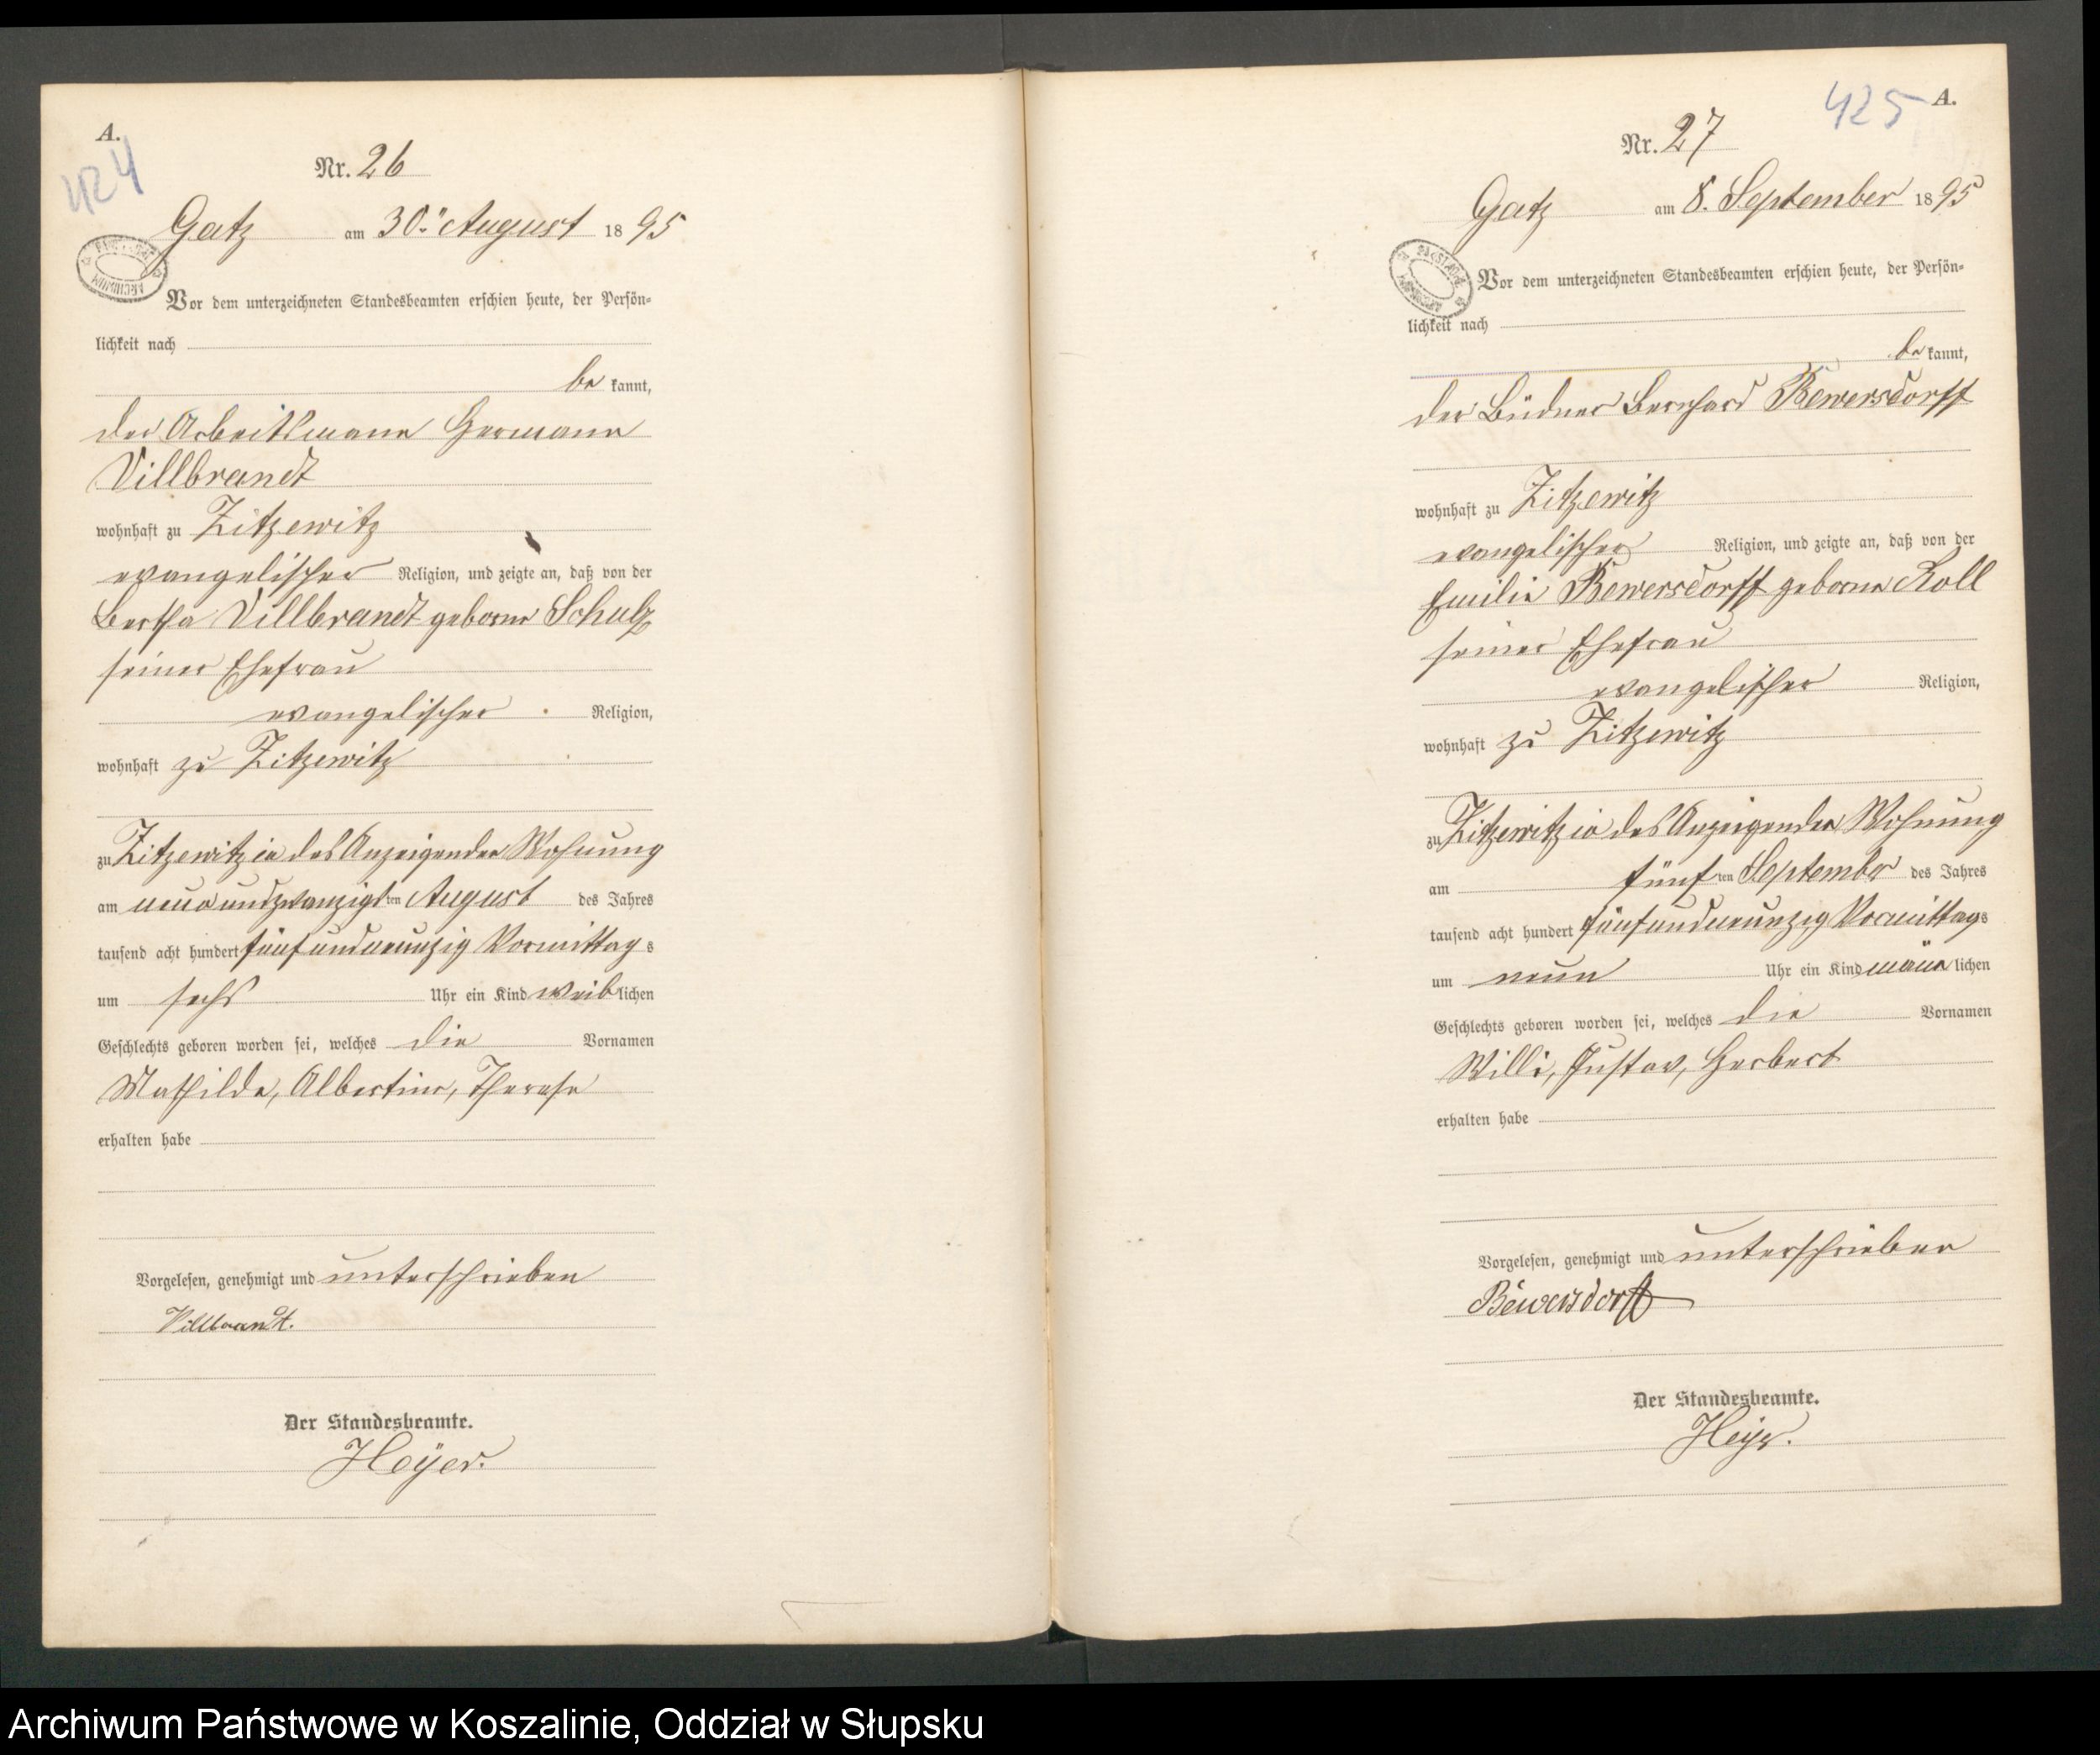 A.
424
Nr. 26
Gatz am 30ten August 1895
Vor dem unterzeichneten Standesbeamten erschien heute, der Persön-
lichkeit nach
be kannt,
der Arbeitsmann Hermann
Villbrandt
wohnhaft zu Zitzewitz
evangelischer Religion, und zeigte an, daß von der
Bertha Villbrandt geborne Schulz
seiner Ehefrau
evangelischer Religion,
wohnhaft zu Zitzewitz
zu Zitzewitz in des Anzeigenden Wohnung
am neunundzwanzigsten August des Jahres
tausend acht hundert fünfundneunzig Vormittags
um sechs Uhr ein Kind weiblichen
Geschlechts geboren worden sei, welches die Vornamen
Mathilde, Albertine, Therese
erhalten habe
Vorgelesen, genehmigt und unterschrieben
Villbrandt.
Der Standesbeamte.
Heÿer.
425 A.
Nr. 27
Gatz am 8. September 1895
Vor dem unterzeichneten Standesbeamten erschien heute, der Persön-
lichkeit nach
be kannt,
der Büdner Bernhard Bewersdorff
wohnhaft zu Zitzewitz
evangelischer Religion, und zeigte an, daß von der
Emilie Bewersdorff geborne Koll
seiner Ehefrau
evangelischer Religion,
wohnhaft zu Zitzewitz
zu Zitzewitz in des Anzeigenden Wohnung
am fünften September des Jahres
tausend acht hundert fünfundneunzig Vormittags
um neun Uhr ein Kind männlichen
Geschlechts geboren worden sei, welches die Vornamen
Willi, Gustav, Herbert
erhalten habe
Vorgelesen, genehmigt und unterschrieben
Bewersdorff
Der Standesbeamte.
Heÿer.
Archiwum Państwowe w Koszalinie, Oddział w Słupsku